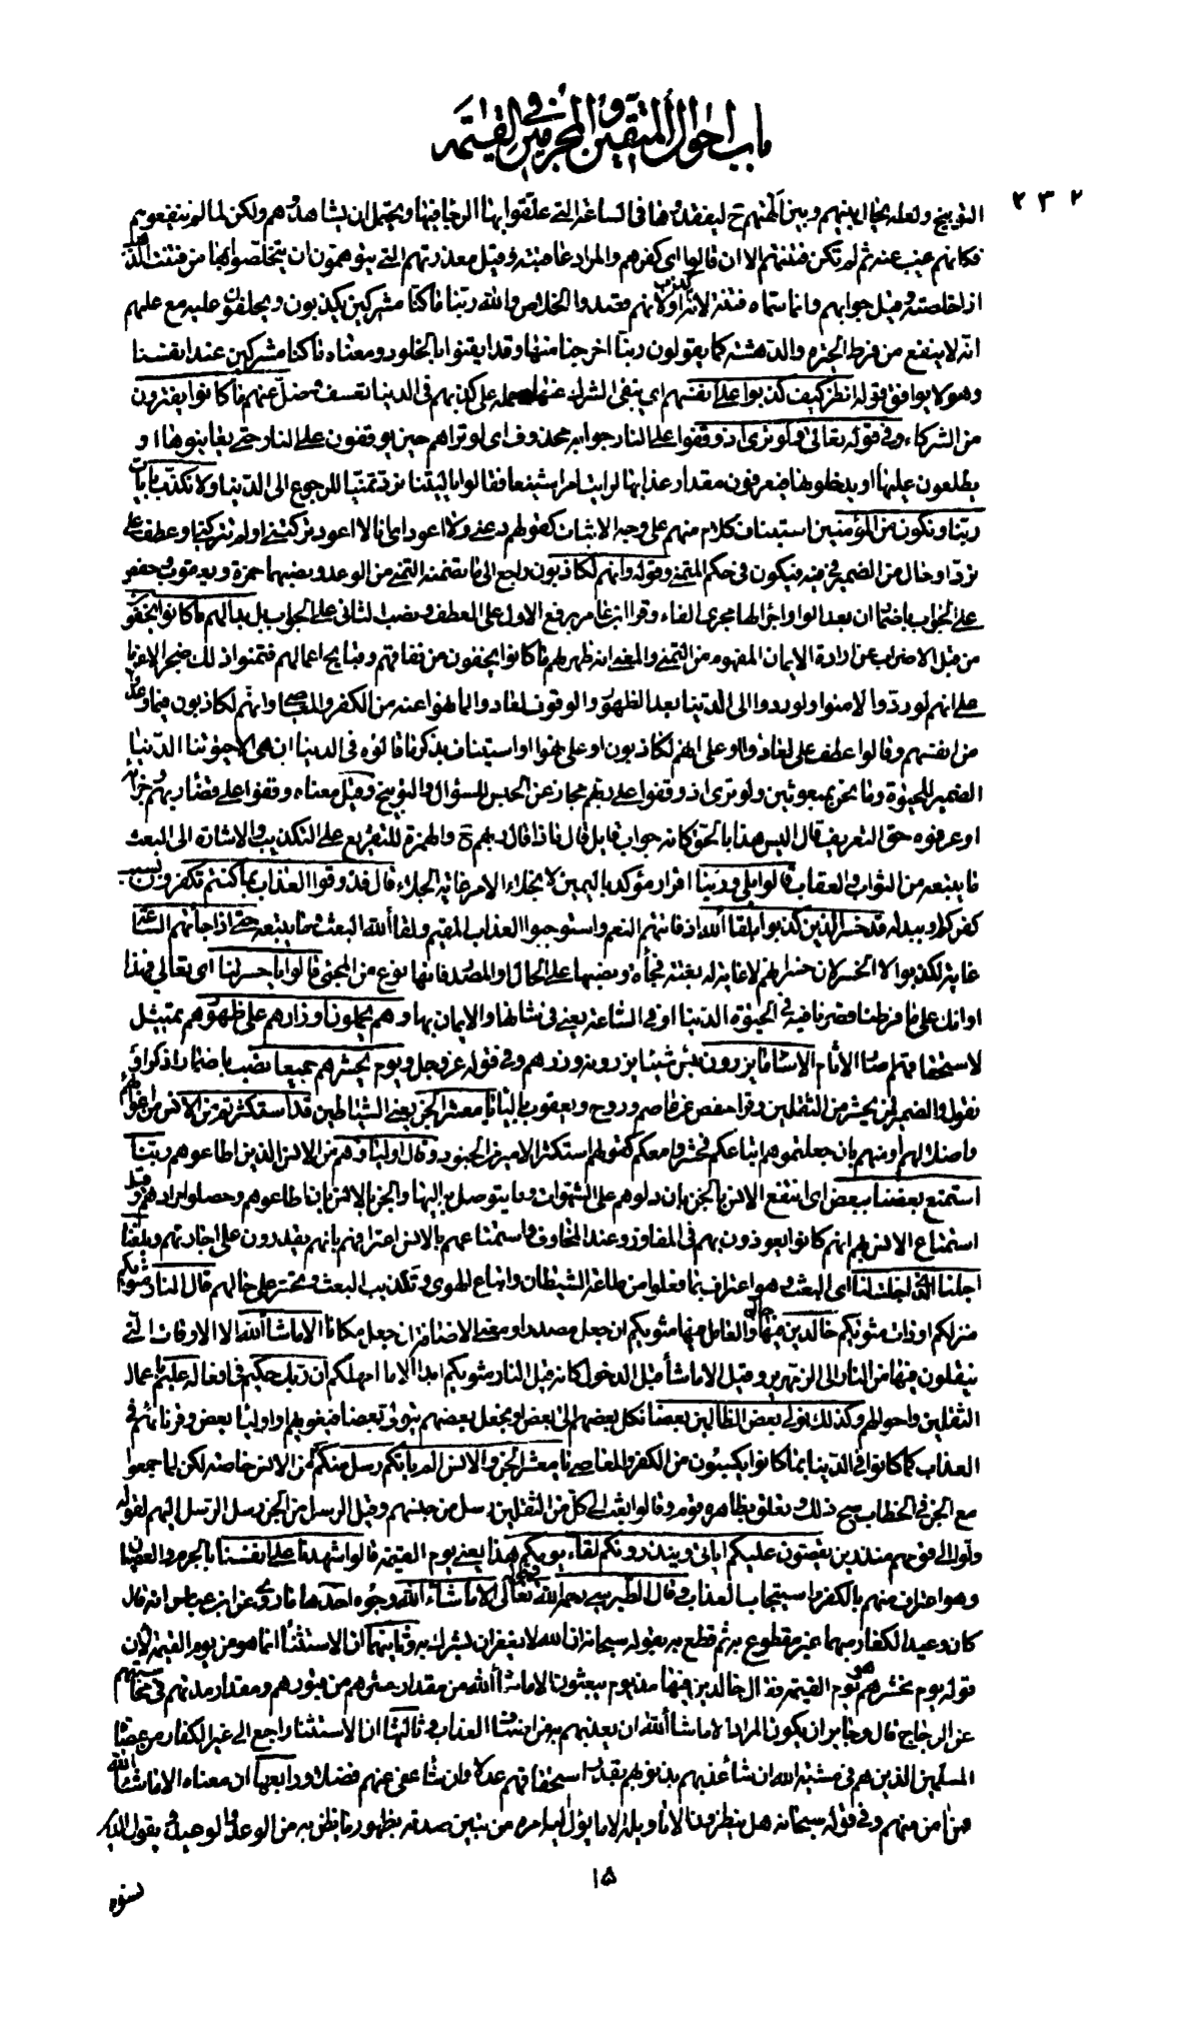 باب احوال المتقين و المجرمين في القيمة
٢٣٢
التوبيخ ولعله يحال بينهم وبين الهتهم ح ليفقدوها في الساعة التي علقوا بها الرجا فيها ويحتمل ان يشاهدوهم ولكن لما لم ينفعوهم
فكانهم غيب عنهم ثم لم تكن فتنتهم الا ان قالوا اى كفرهم والمراد عاقبته وقيل معذرتهم التي يتوهمون ان يتخلصوا بها من فتنت الذهب
اذا خلصته وقيل جوابهم وانما سماه فتنة لانه كذب او لانهم قصدوا به الخلاص والله ربنا ما كنا مشركين يكذبون ويحلفون عليه مع علمهم
انه لا ينفع من فرط الحيرة والدهشة كما يقولون ربنا اخرجنا منها وقد ايقنوا بالخلود ومعناه ما كنا مشركين عند انفسنا
وهو لا يوافق قوله انظر كيف كذبوا على انفسهم اى بنفى الشرك عنها وحمله على كذبهم في الدنيا تعسف وضل عنهم ما كانوا يفترون
من الشركاء وفي قوله تعالى ولو ترى اذ وقفوا على النار جوابه محذوف اى لو تراهم حين يوقفون على النار حتى يعاينوها او
يطلعون عليها او يدخلونها فيعرفون مقدار عذابها لرايت امرا شنيعا فقالوا يا ليتنا نرد تمنيا للرجوع الى الدنيا ولا نكذب بايات
ربنا ونكون من المؤمنين استيناف كلام منهم على وجه الاثبات كقولهم دعني ولا اعود اى انا لا اعود تركتني او لم تتركني او عطف على
نرد او حال من الضمير فيه فيكون في حكم المتمنى وقوله وانهم لكاذبون راجع الى ما تضمنه التمني من الوعد ونصبهما حمزة ويعقوب وحفص
على الجواب باضمار ان بعد الواو اجرا لها مجرى الفاء وقرا ابن عامر برفع الاول على العطف ونصب الثاني على الجواب بل بدا لهم ما كانوا يخفون
من قبل الاضراب عن ارادة الايمان المفهوم من التمني والمعنى انه ظهر لهم ما كانوا يخفون من نفاقهم وقبايح اعمالهم فتمنوا ذلك ضجرا لا عزما
على انهم لو ردوا لامنوا ولو ردوا الى الدنيا بعد الظهور والوقوف لعادوا لما نهوا عنه من الكفر والمعاصي وانهم لكاذبون فيما وعدوا
من انفسهم وقالوا عطف على لعادوا او على انهم لكاذبون او على نهوا او استيناف بذكر ما قالوه في الدنيا ان هي الا حيوتنا الدنيا
الضمير للحيوة وما نحن بمبعوثين ولو ترى اذ وقفوا على ربهم مجاز عن الحبس للسؤال والتوبيخ وقيل معناه وقفوا على قضاء ربهم وجزائه
او عرفوه حق التعريف قال اليس هذا بالحق كانه جواب قايل قال ماذا قال ربهم ح والهمزة للتقريع على التكذيب والاشارة الى البعث
وما يتبعه من الثواب والعقاب قالوا بلى وربنا اقرار مؤكد باليمين لانجلاء الامر غاية الجلاء قال فذوقوا العذاب بما كنتم تكفرون بسبب
كفركم او ببدله قد خسر الذين كذبوا بلقاء الله اذ فاتهم النعم واستوجبوا العذاب المقيم ولقاء الله البعث وما يتبعه حتى اذا جاءتهم الساعة
غاية لكذبوا لا لخسر لان خسرانهم لا غاية له بغتة فجأة ونصبها على الحال او المصدر فانها نوع من المجئ قالوا يا حسرتنا اى تعالي فهذا
اوانك على ما فرطنا قصرنا فيها في الحيوة الدنيا او في الساعة يعني في شانها والايمان بها وهم يحملون اوزارهم على ظهورهم تمثيل
لاستحقاقهم اصار الاثام الا ساء ما يزرون بئس شيئا يزرونه وزرهم وفي قوله عز وجل ويوم يحشرهم جميعا نصب باضمار اذكر او
نقول والضمير لمن يحشر من الثقلين وقرا حفص عن عاصم وروح ويعقوب بالياء يا معشر الجن يعني الشياطين قد استكثرتم من الانس من اغوائهم
واضلالهم او منهم بان جعلتموهم اتباعكم فحشروا معكم كقولهم استكثر الامير من الجنود وقال اولياؤهم من الانس الذين اطاعوهم ربنا
استمتع بعضنا ببعض اى انتفع الانس بالجن بان دلوهم على الشهوات وما يتوصل به اليها والجن بالانس بان اطاعوهم وحصلوا مرادهم وقيل
استمتاع الانس بهم انهم كانوا يعوذون بهم في المفاوز وعند المخاوف واستمتاعهم بالانس اعترافهم بانهم يقدرون على اجارتهم وبلغنا
اجلنا الذي اجلت لنا اى البعث وهو اعتراف بما فعلوا من طاعة الشيطان واتباع الهوى وتكذيب البعث وتحسر على حالهم قال النار مثويكم
منزلكم او ذات مثويكم خالدين فيها حال والعامل فيها مثويكم ان جعل مصدرا ومعنى الاضافة ان جعل مكانا الا ما شاء الله الا الاوقات التي
ينقلون فيها من النار الى الزمهرير وقيل الا ما شاء قبل الدخول كانه قيل النار مثويكم ابدا الا ما امهلكم ان ربك حكيم في افعاله عليم باعمال
الثقلين واحوالهم وكذلك نولي بعض الظالمين بعضا نكل بعضهم الى بعض او نجعل بعضهم يتولى بعضا فيغويهم او اولياء بعض وقرنائهم في
العذاب كما كانوا في الدنيا بما كانوا يكسبون من الكفر والمعاصي يا معشر الجن والانس الم ياتكم رسل منكم من الانس خاصة لكن لما جمعوا
مع الجن في الخطاب صح ذلك وتعلق بظاهره قوم وقالوا بعث الى كل من الثقلين رسل من جنسهم وقيل الرسل من الجن رسل الرسل اليهم لقوله
ولوا الى قومهم منذرين يقصون عليكم اياتي وينذرونكم لقاء يومكم هذا يعني يوم القيمة قالوا شهدنا على انفسنا بالجرم والعصيان
وهو اعتراف منهم بالكفر واستيجاب العذاب وقال الطبرسي رحمه الله في قوله تعالى الا ما شاء الله وجوه احدها ما روي عن ابن عباس انه قال
كان وعيد الكفار مبهما غير مقطوع به ثم قطع به بقوله سبحانه ان الله لا يغفر ان يشرك به وثانيهما ان الاستثناء انما هو من يوم القيمة لان
قوله يوم نحشرهم هو يوم القيمة فقال خالدين فيها مذ يوم يبعثون الا ما شاء الله من مقدار حشرهم من قبورهم ومقدار مدتهم في محاسبتهم
عن الزجاج قال وجايز ان يكون المراد الا ما شاء الله ان يعذبهم به من اصناف العذاب وثالثها ان الاستثناء راجع الى غير الكفار من عصاة
المسلمين الذين هم في مشية الله ان شاء عذبهم بذنوبهم بقدر استحقاقهم عدلا وان شاء عفى عنهم فضلا ورابعها ان معناه الا ما شاء الله
ممن امن منهم وفي قوله سبحانه هل ينظرون الا تاويله الا ما يؤل اليه امره من تبين صدقه بظهور ما نطق به من الوعد والوعيد يقول الذين
١٥
نسوه